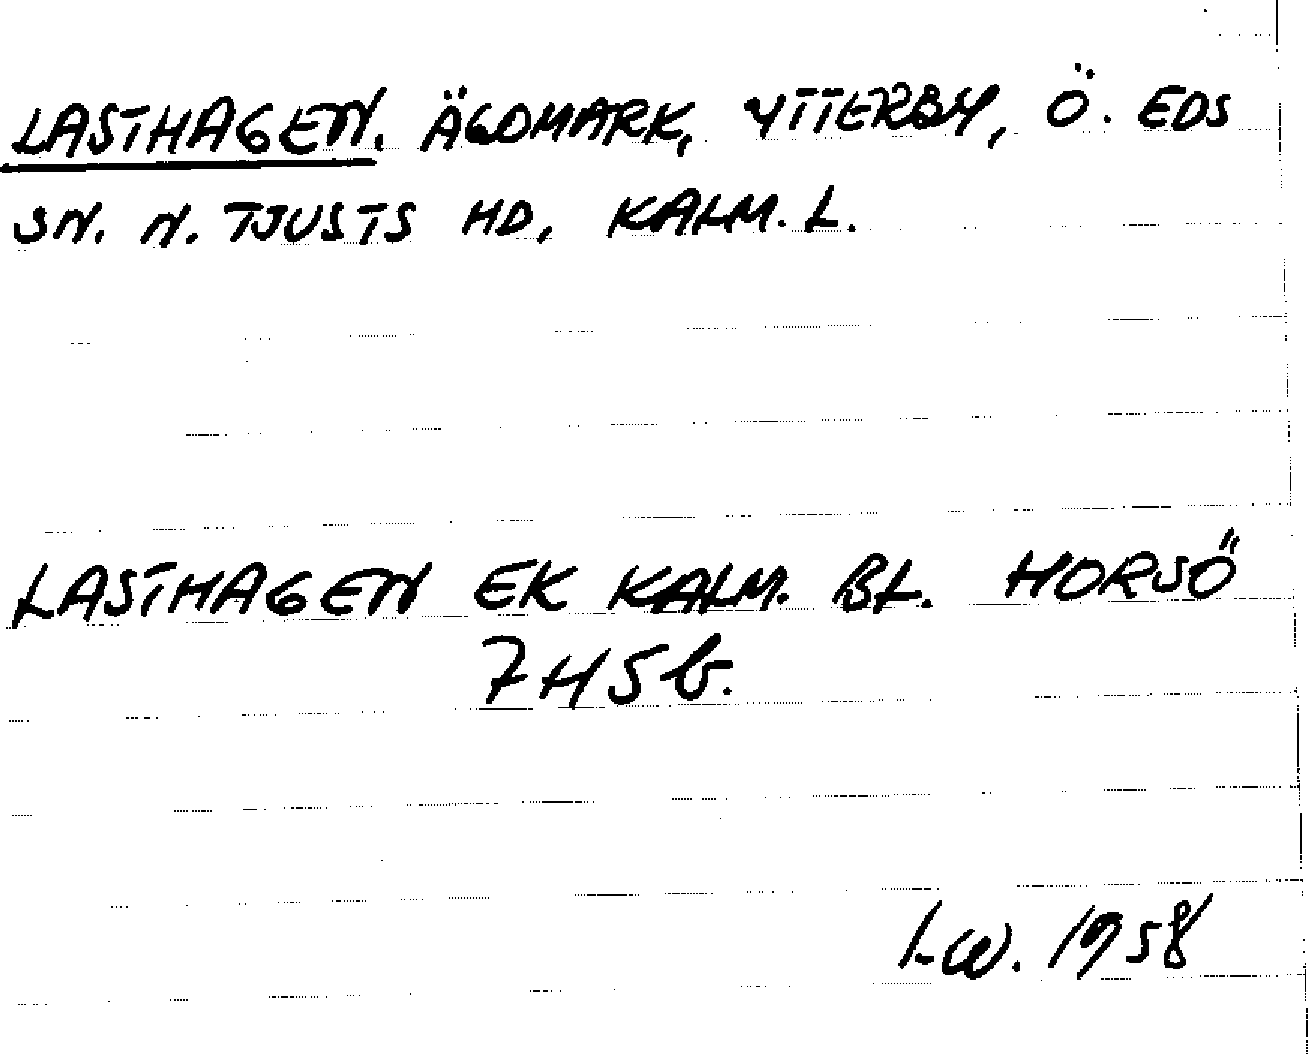 LASTHAGEN. ÄGOMARK, YTTERBY, Ö. EDS
SN. N. TJUSTS HD, KALM. L.
LASTHAGEN EK KALM. BL. HORSÖ
7H5b.
I.W. 1958